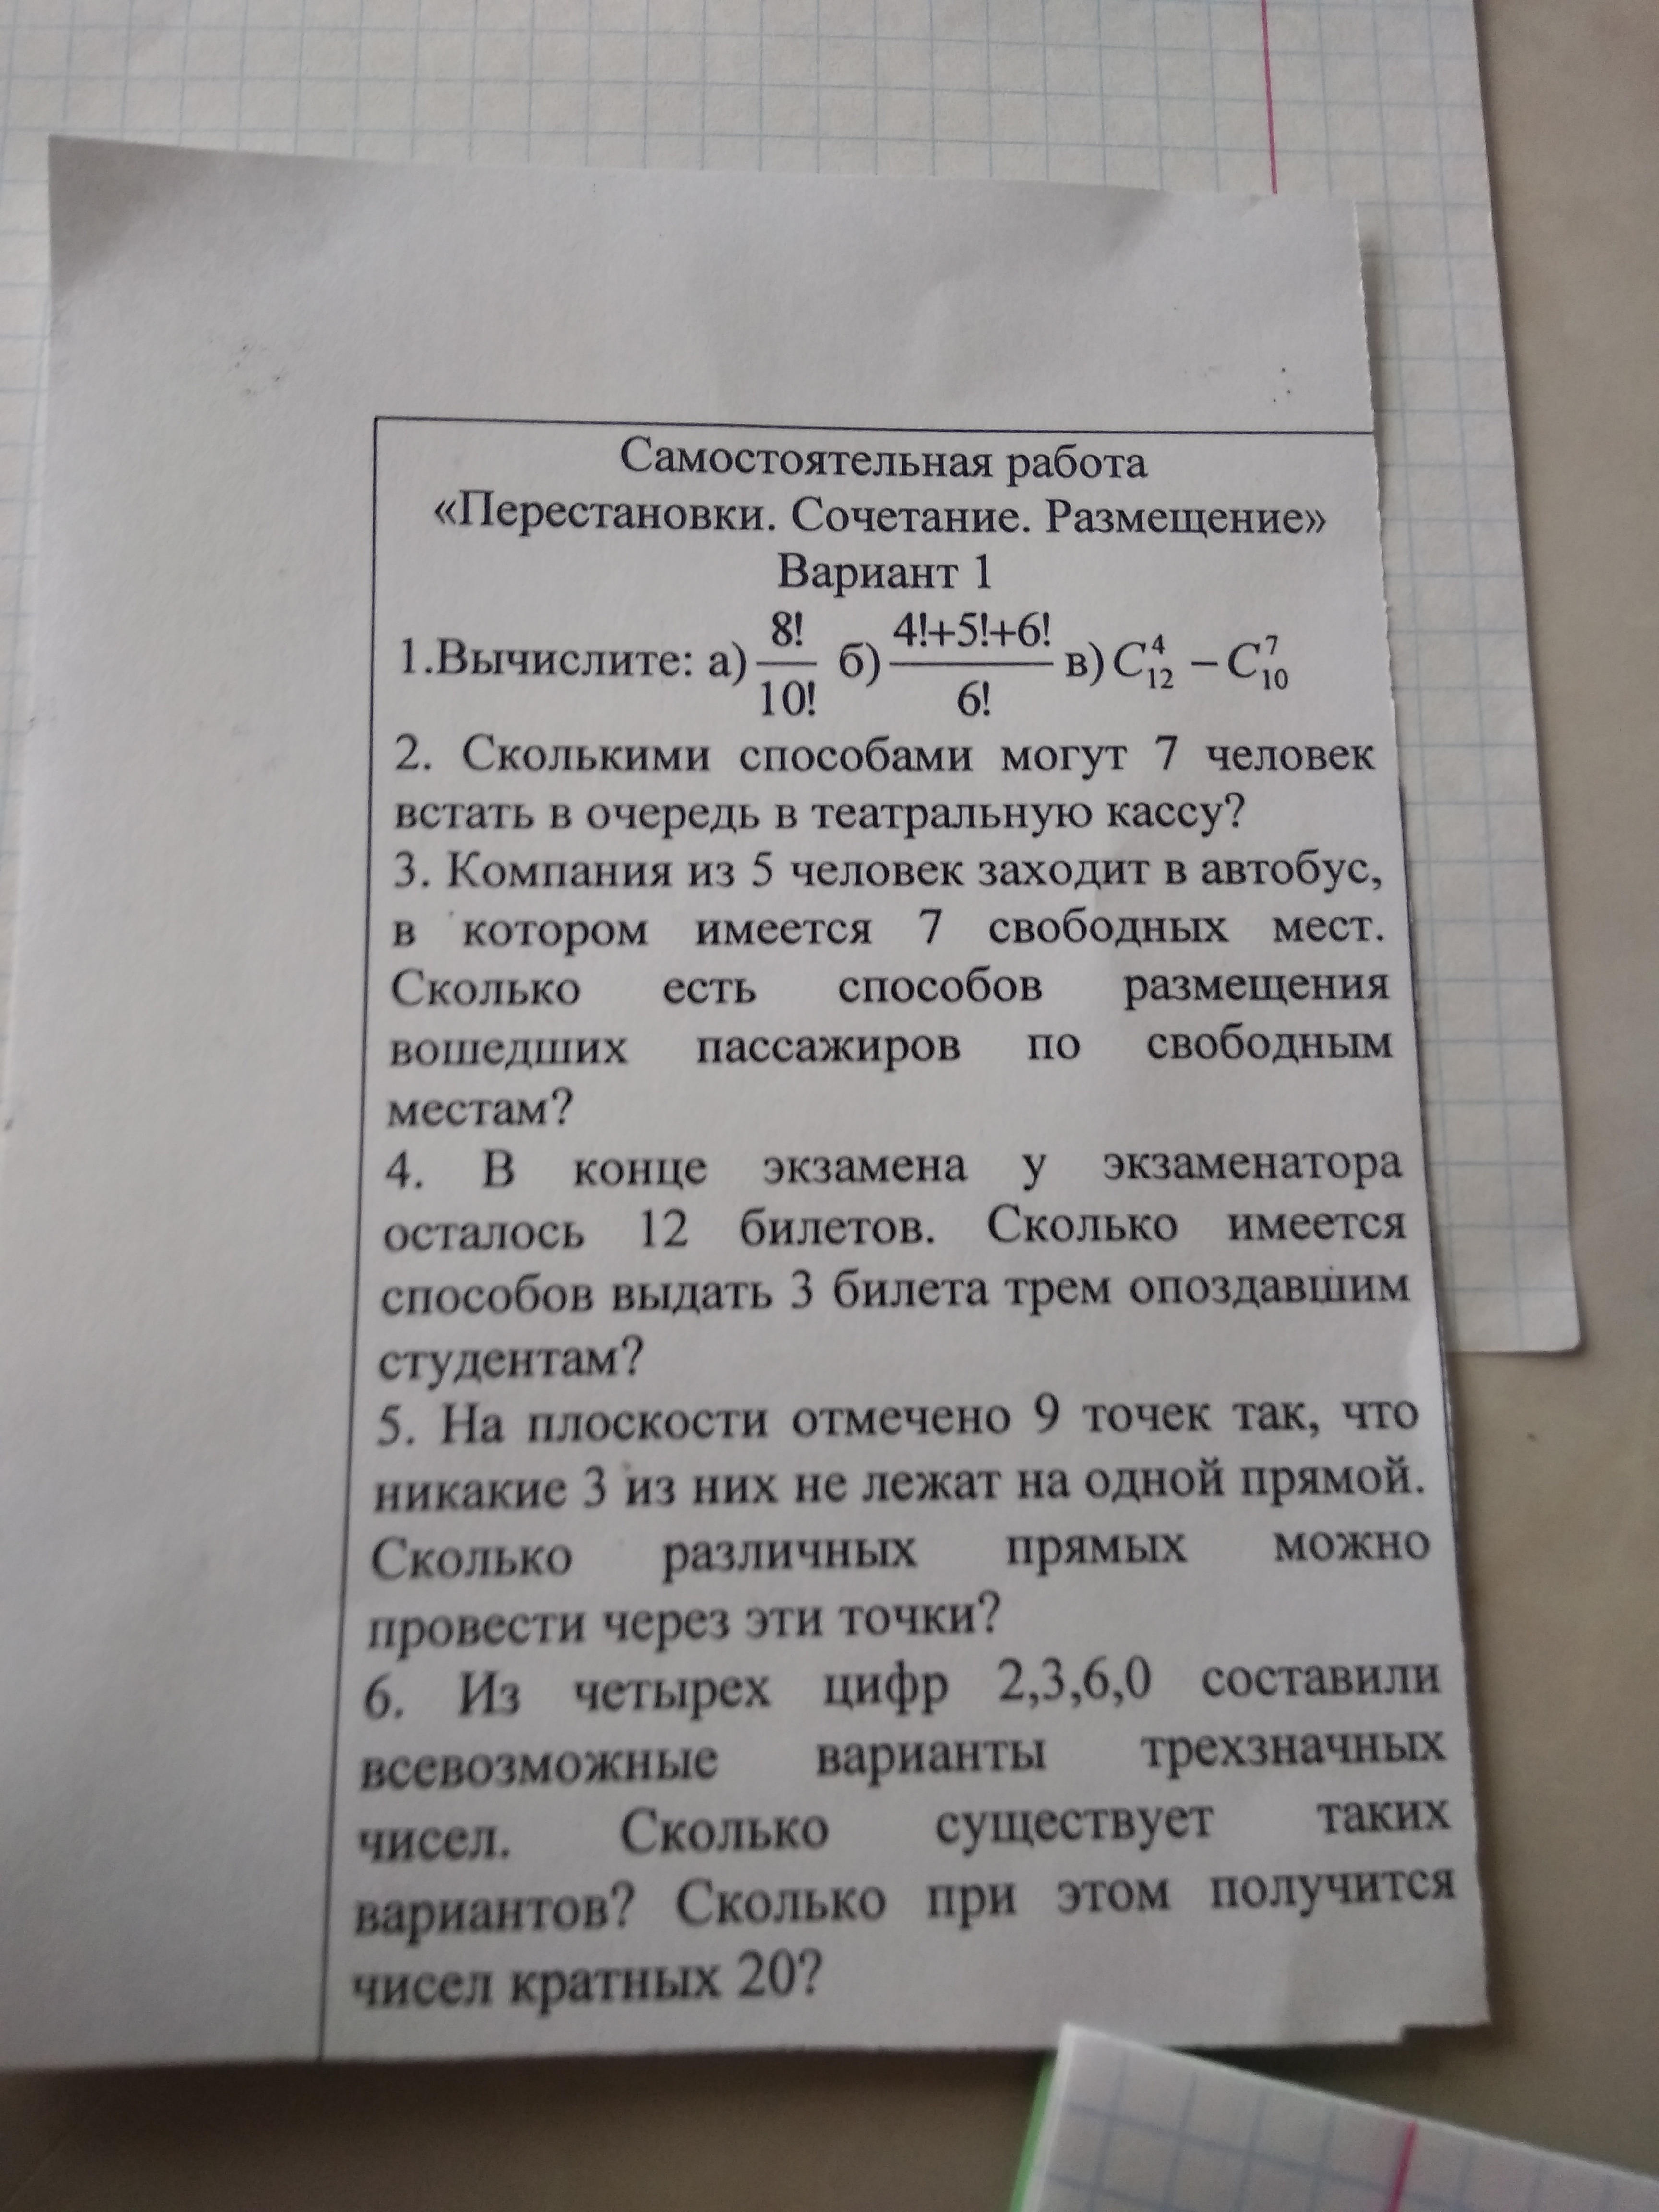 Самостоятельная работа
«Перестановки. Сочетание. Размещение»
Вариант 1
1.Вычислите: а) 8!/10! б) (4!+5!+6!)/6! в) C₁₂⁴ – C₁₀⁷
2. Сколькими способами могут 7 человек
встать в очередь в театральную кассу?
3. Компания из 5 человек заходит в автобус,
в котором имеется 7 свободных мест.
Сколько есть способов размещения
вошедших пассажиров по свободным
местам?
4. В конце экзамена у экзаменатора
осталось 12 билетов. Сколько имеется
способов выдать 3 билета трем опоздавшим
студентам?
5. На плоскости отмечено 9 точек так, что
никакие 3 из них не лежат на одной прямой.
Сколько различных прямых можно
провести через эти точки?
6. Из четырех цифр 2,3,6,0 составили
всевозможные варианты трехзначных
чисел. Сколько существует таких
вариантов? Сколько при этом получится
чисел кратных 20?